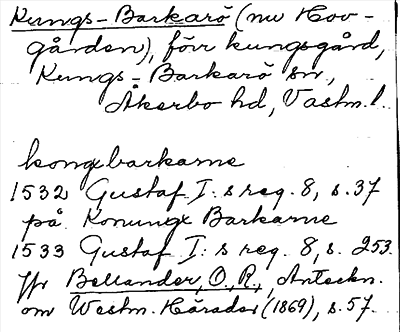 Kungs-Barkarö (nu Hov-
gården), förr kungsgård,
Kungs-Barkarö sn,
Åkerbo hd, Vastm. l.
kongxbarkarne
1532 Gustaf I:s reg. 8, s. 37
på Konungx Barkarne
1533 Gustaf I:s reg. 8, s. 253.
jfr Bellander, O. R., Anteckn.
om Westm. Härader (1869), s. 57.